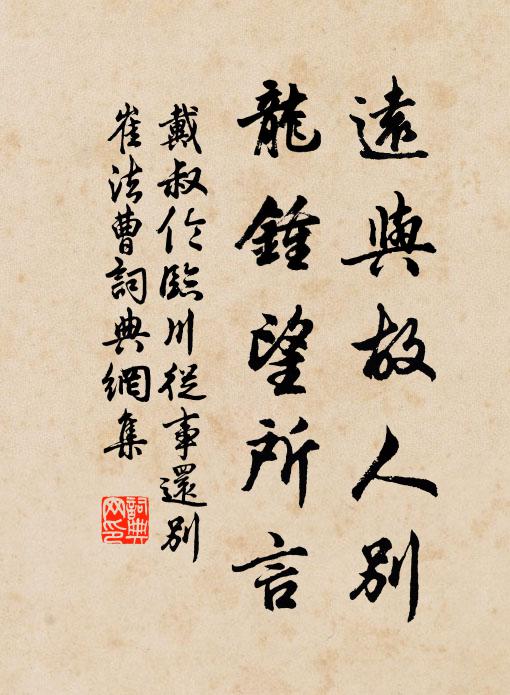 遠與故人別
龍鍾望所言
戴叔倫臨川從事還別
崔法曹詞典網集
詞典
网印